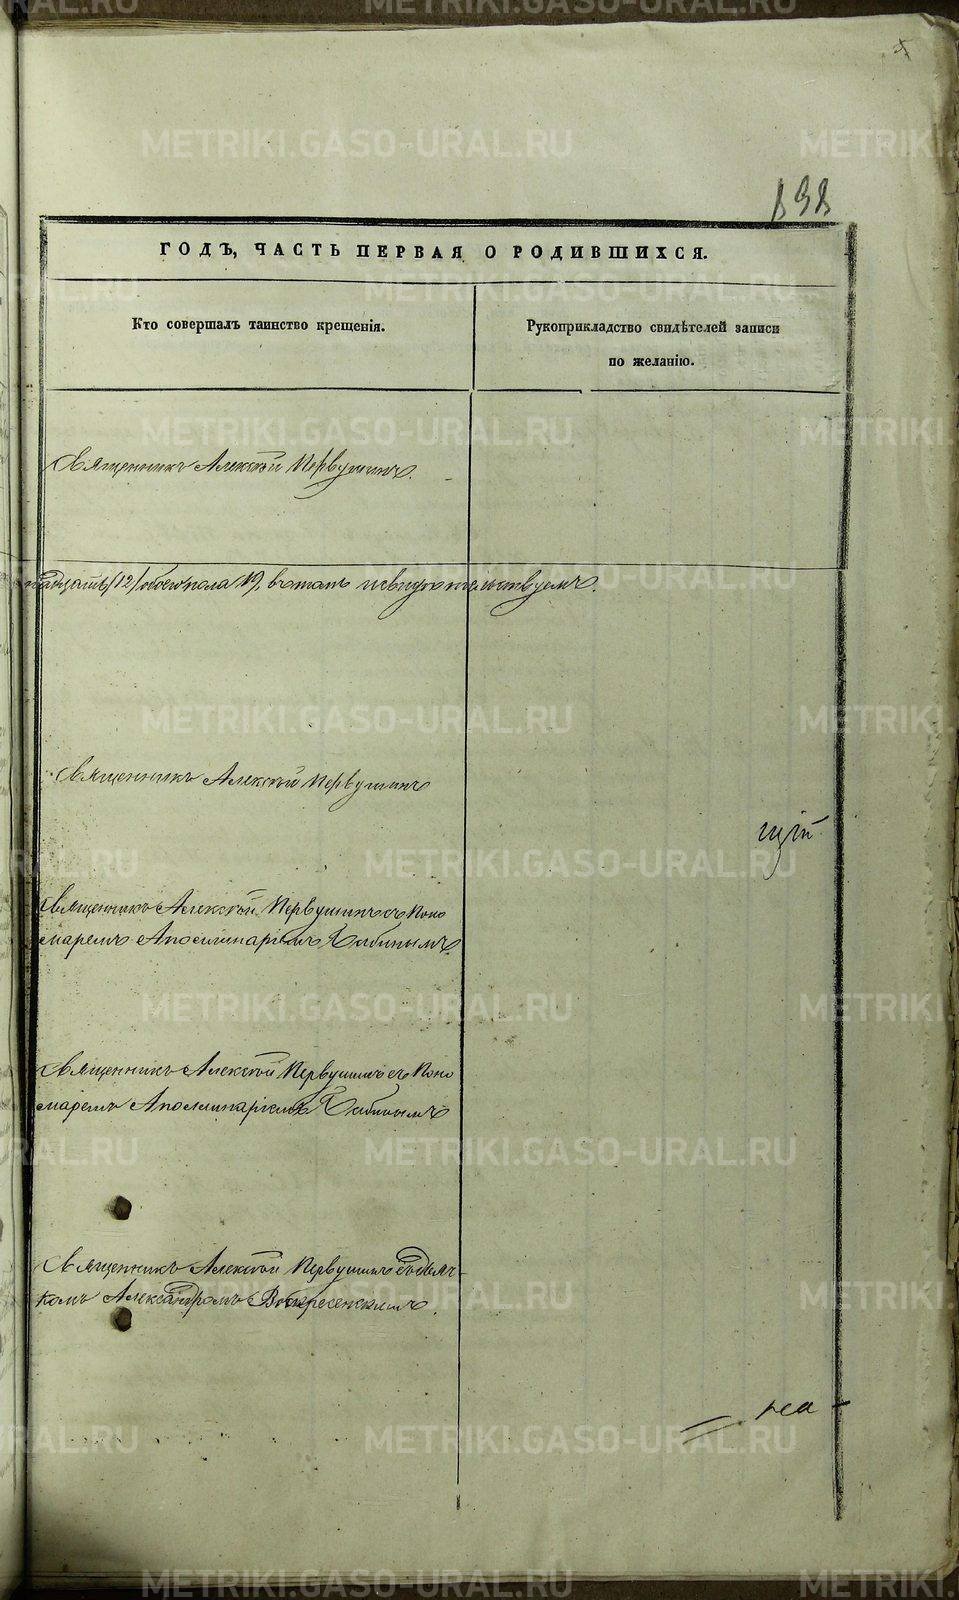 898
ГОДЪ, ЧАСТЬ ПЕРВАЯ О РОДИВШИХСЯ.
Кто совершалъ таинство крещенія.
Рукоприкладство свидѣтелей записи
по желанію.
Священникъ Алексѣй Первушинъ.
надцать (12) обоего пола 19, въ томъ и свидѣтельствуемъ.
Священникъ Алексѣй Первушинъ
Священникъ Алексѣй Первушинъ съ Поно
маремъ Аполлинаріемъ Бабинымъ.
Священникъ Алексѣй Первушинъ съ Поно
маремъ Аполлинаріемъ Бабинымъ
Священникъ Алексѣй Первушинъ съ Дьяч-
комъ Александромъ Воскресенскимъ.
METRIKI.GASO-URAL.RU